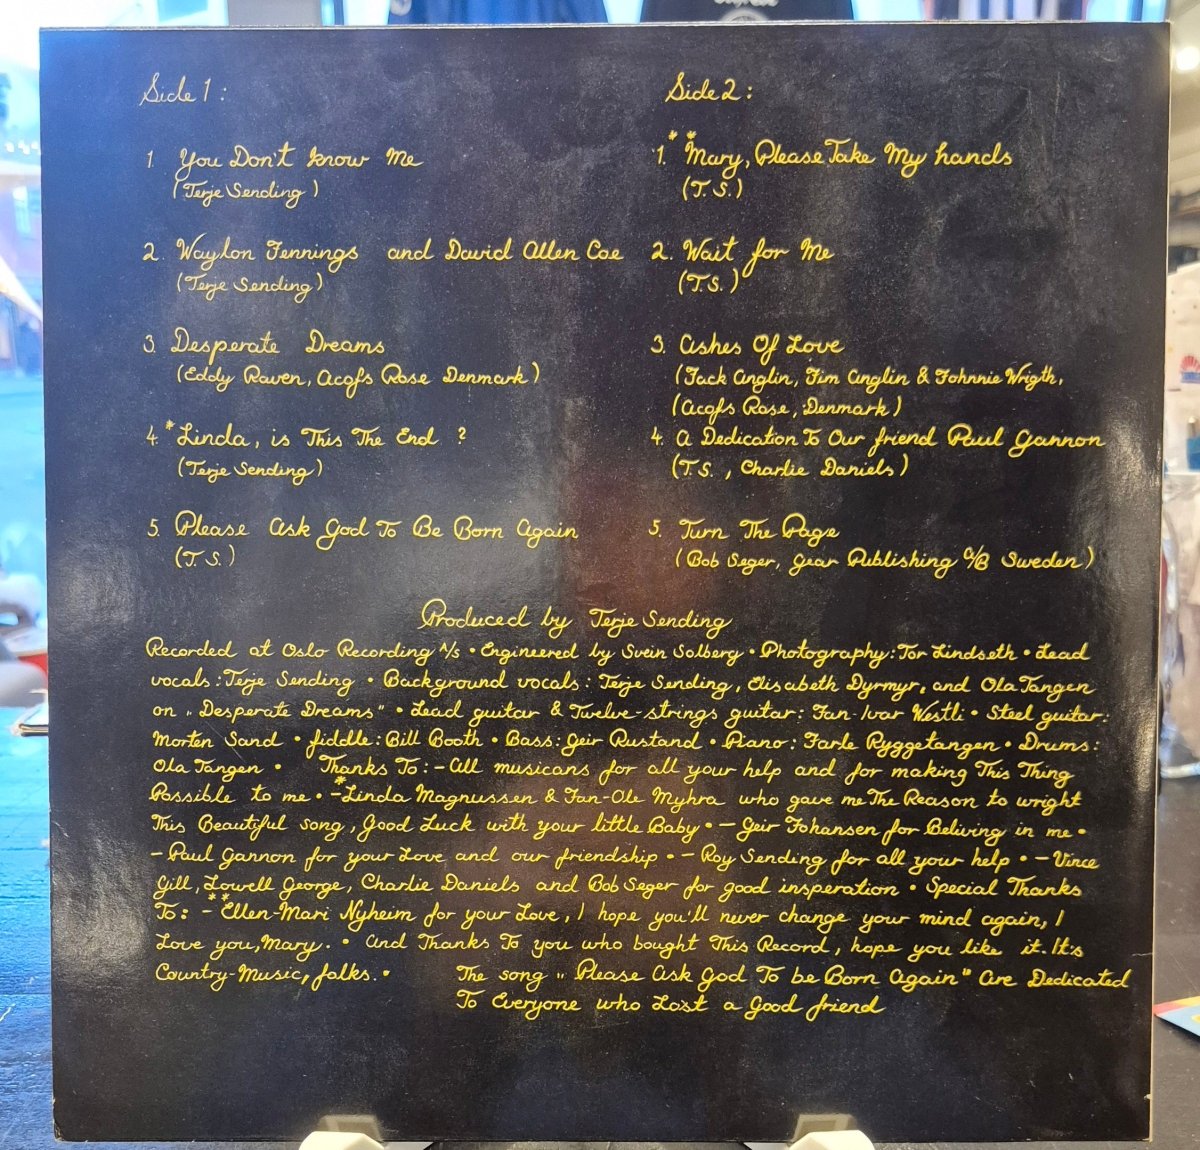 Side 1:
1. You Don't know Me
(Terje Sending)
2. Waylon Jennings and David Allen Coe
(Terje Sending)
3. Desperate Dreams
(Eddy Raven, Acqfs Rose Denmark)
4. *Linda, is This The End ?
(Terje Sending)
5. Please Ask God To Be Born Again
(T. S.)
Side 2:
1. **Mary, Please Take My hands
(T. S.)
2. Wait for Me
(T.S.)
3. Ashes Of Love
(Jack Anglin, Jim Anglin & Johnnie Wrigth,
(Acqfs Rose, Denmark)
4. A Dedication To Our friend Paul Gannon
(T.S., Charlie Daniels)
5. Turn The Page
(Bob Seger, Gear Publishing A/B Sweden)
Produced by Terje Sending
Recorded at Oslo Recording A/S • Engineered by Svein Solberg • Photography: Tor Lindseth • Lead
vocals: Terje Sending • Background vocals: Terje Sending, Elisabeth Dyrmyr, and Ola Tangen
on „Desperate Dreams" • Lead guitar & Twelve-strings guitar: Jan-Ivar Westli • Steel guitar:
Morten Sand • fiddle: Bill Booth • Bass: Geir Rustand • Piano: Jarle Ryggetangen • Drums:
Ola Tangen • Thanks To: - All musicans for all your help and for making This Thing
Possible to me • -*Linda Magnussen & Jan-Ole Myhra who gave me The Reason to wright
This Beautiful song, Good Luck with your little Baby • - Geir Johansen for Beliving in me •
- Paul Gannon for your Love and our friendship • - Roy Sending for all your help • - Vince
Gill, Lowell George, Charlie Daniels and Bob Seger for good insperation • Special Thanks
To: - **Ellen-Mari Nyheim for your Love, I hope you'll never change your mind again, I
Love you, Mary. • And Thanks To you who bought This Record, hope you like it. It's
Country-Music, folks. •
The song „Please Ask God To be Born Again" are Dedicated
To Everyone who Lost a Good friend